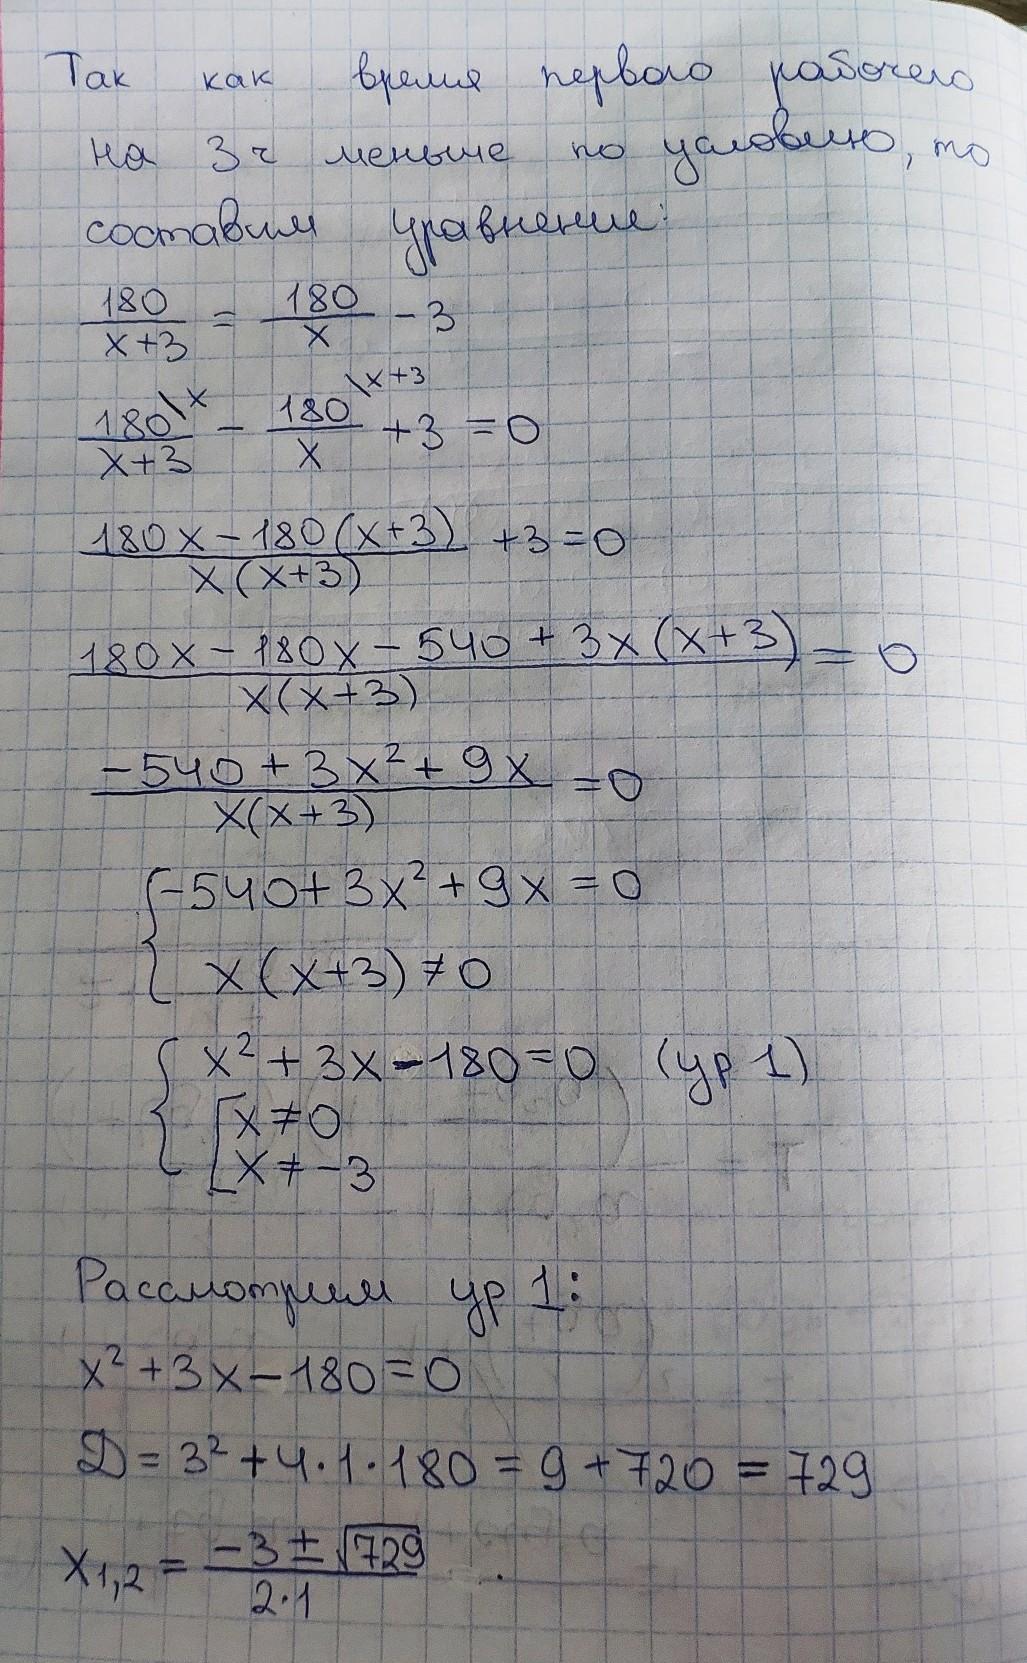 Так как время первого рабочего
на 3ч меньше по условию, то
составим уравнение:
180/(x+3) = 180/x - 3
180\x/(x+3) - 180\x+3/x + 3 = 0
(180x - 180(x+3))/(x(x+3)) + 3 = 0
(180x - 180x - 540 + 3x(x+3))/(x(x+3)) = 0
(-540 + 3x² + 9x)/(x(x+3)) = 0
{ -540 + 3x² + 9x = 0
x(x+3) ≠ 0
{ x² + 3x - 180 = 0 (ур 1)
[ x ≠ 0
x ≠ -3
Рассмотрим ур 1:
x² + 3x - 180 = 0
Д = 3² + 4·1·180 = 9 + 720 = 729
x1,2 = (-3 ± √729)/(2·1)